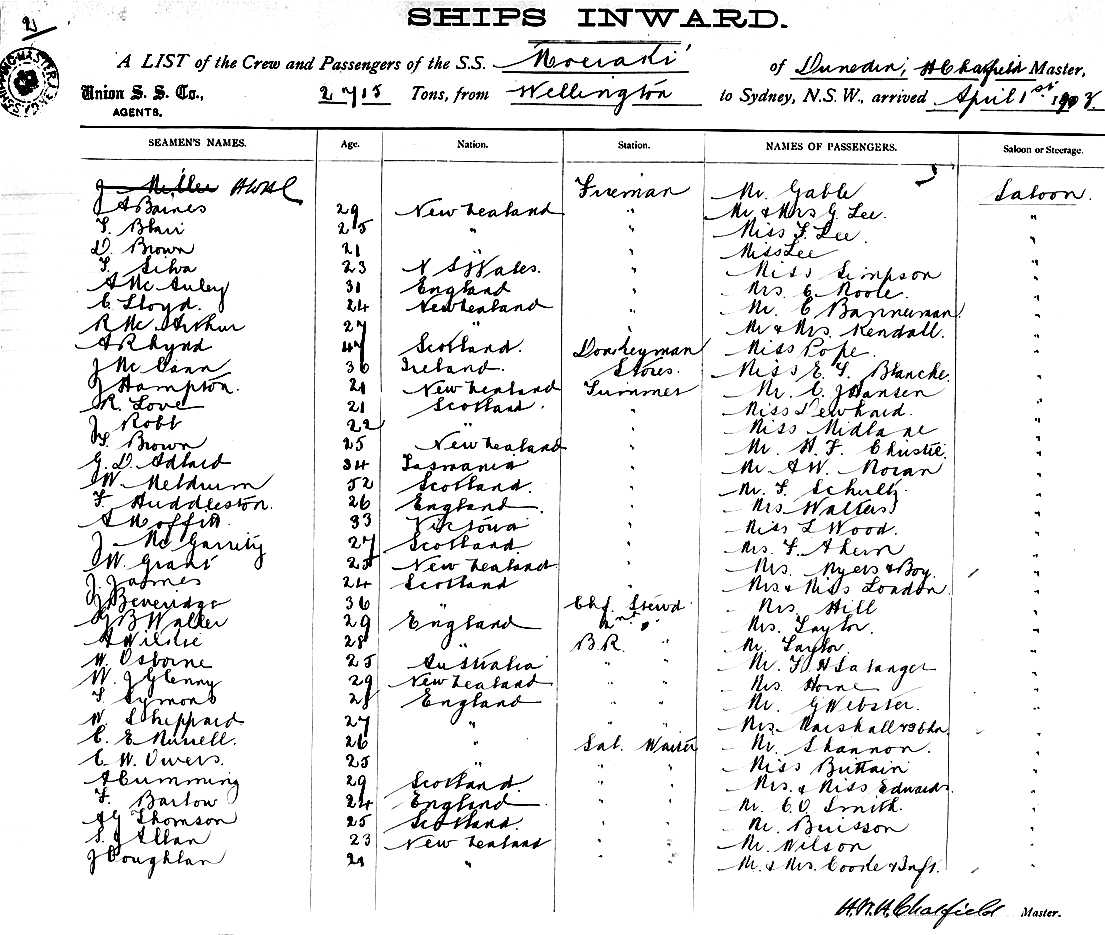 2
SHIPS INWARD.
A LIST of the Crew and Passengers of the S.S. Moeraki of Dunedin, H Chatfield Master,
Union S. S. Co., 2715 Tons, from Wellington to Sydney, N.S.W., arrived April 1st 190
AGENTS.
SEAMEN'S NAMES. Age. Nation. Station. NAMES OF PASSENGERS. Saloon or Steerage.
J Miller Fireman Mr. Gable Saloon
J A Baines 29 New Zealand " Mr & Mrs G. Lee. "
T. Blair 25 " " Miss F. Lee. "
D. Brown 21 " " Miss Lee "
T. Silva 23 N S Wales. " Miss Simpson "
A Mc Auley 31 England " Mrs C Noole. "
C Lloyd. 24 New Zealand " Mr. C Bannerman "
R Mc Arthur 27 " " Mr & Mrs. Kendall. "
A Rhynd 47 Scotland. Donkeyman Miss Pope. "
J Mc Cann 36 Ireland. Stores. Miss E. F. Blanche. "
J Hampton. 21 New Zealand Trimmer Mr. C. J Hansen "
R. Love 21 Scotland. " Miss "
J Robb 22 " " Miss Midlane "
T. Brown 25 New Zealand " Mr. H. F. Christie. "
G. D. Adlard 34 Tasmania " Mr. A W. Moran "
W Meldrum 52 Scotland. " Mr. F. Schultz "
F Huddleston. 26 England. " Mrs Walters "
A Moffitt. 33 Victoria " Miss L Wood. "
J Mc Garrity 27 Scotland. " Mrs. F. Ahern "
W. Grant 25 New Zealand " Mrs. Myers & Boy "
J. James 24 Scotland " Mrs & Miss London "
J Beveridge 36 " Chf. Stewd Mrs. Hill "
J B Walker 29 England 2nd " Mrs. Taylor. "
A Wildie 28 " B.R. " Mr. Taylor. "
W. Osborne 25 Australia " " Mr. F H "
W. J Glenny 29 New Zealand " " Mrs. Horne "
T Symons 21 England " " Mr. G Webster. "
W. Sheppard 27 " " " Mrs. Marshall & 3 Chn. "
C. E Nussell. 26 " Sal. Waiter Mr. Shannon. "
C. W. Owers. 25 " " " Miss Brittain "
A Cumming 29 Scotland. " " Mrs. & Miss Edwards. "
F. Barlow 24 England " " Mr. C O. Smith. "
A J Thomson 25 Scotland. " " Mr. Buisson "
S. J Allan 23 New Zealand " " Mr. Wilson "
J Coughlan 21 " " " Mr. & Mrs. Coode & Inft. "
H. N. H. Chatfield Master.